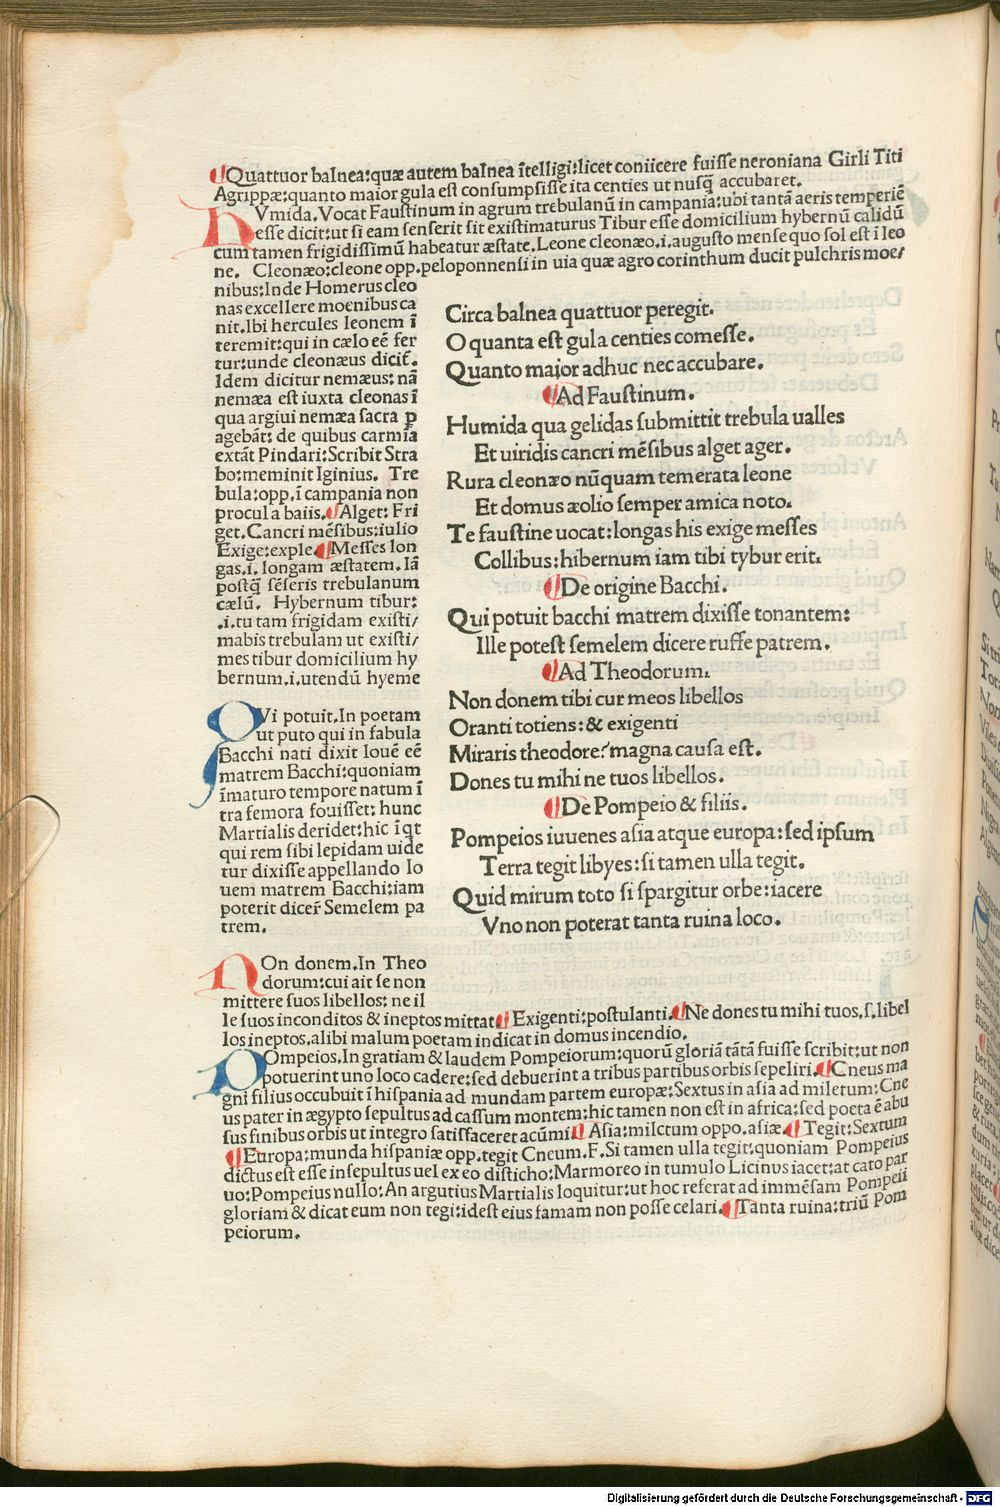 ¶Quattuor balnea:quæ autem balnea ĩtelligi:licet coniicere fuiſſe neroniana Girli Titi
Agrippæ:quanto maior gula eſt conſumpſiſſe ita centies ut nuſq̃ accubaret.
hVmida.Vocat Fauſtinum in agrum trebulanũ in campania:ubi tantã aeris temperiẽ
eſſe dicit:ut ſi eam ſenſerit ſit exiſtimaturus Tibur eſſe domicilium hybernũ calidũ
cum tamen frigidiſſimũ habeatur æſtate.Leone cleonæo.i.auguſto menſe quo ſol eſt ĩ leo
ne. Cleonæo:cleone opp.peloponnenſi in uia quæ agro corinthum ducit pulchris moe/
nibus:Inde Homerus cleo
nas excellere moenibus ca
nit.Ibi hercules leonem ĩ
teremit:qui in cælo eẽ fer
tur:unde cleonæus dicit̃.
Idem dicitur nemæus: nã
nemæa eſt iuxta cleonas ĩ
qua argiui nemæa ſacra ꝑ
agebãt: de quibus carmĩa
extãt Pindari:Scribit Stra
bo:meminit Iginius. Tre
bula:opp.ĩ campania non
procul a baiis.¶Alget: Fri
get.Cancri mẽſibus:iulio
Exige:exple.¶Meſſes lon
gas.i. longam æſtatem. Iã
poſtq̃ ſẽſeris trebulanum
cælũ. Hybernum tibur:
.i.tu tam frigidam exiſti/
mabis trebulam ut exiſti/
mes tibur domicilium hy
bernum.i.utendũ hyeme
Circa balnea quattuor peregit.
O quanta eſt gula centies comeſſe.
Quanto maior adhuc nec accubare.
¶Ad Fauſtinum.
Humida qua gelidas ſubmittit trebula ualles
Et uiridis cancri mẽſibus alget ager.
Rura cleonæo nũquam temerata leone
Et domus æolio ſemper amica noto.
Te fauſtine uocat:longas his exige meſſes
Collibus:hibernum iam tibi tybur erit.
¶De origine Bacchi.
Qui potuit bacchi matrem dixiſſe tonantem:
Ille poteſt ſemelem dicere ruffe patrem.
¶Ad Theodorum.
Non donem tibi cur meos libellos
Oranti totiens:& exigenti
Miraris theodore?magna cauſa eſt.
Dones tu mihi ne tuos libellos.
¶De Pompeio & filiis.
Pompeios iuuenes aſia atque europa:ſed ipſum
Terra tegit libyes:ſi tamen ulla tegit.
Quid mirum toto ſi ſpargitur orbe:iacere
Vno non poterat tanta ruina loco.
QVi potuit.In poetam
ut puto qui in fabula
Bacchi nati dixit Iouẽ eẽ
matrem Bacchi:quoniam
ĩmaturo tempore natum ĩ
tra femora fouiſſet: hunc
Martialis deridet:hic ĩqt
qui rem ſibi lepidam uide
tur dixiſſe appellando Io
uem matrem Bacchi:iam
poterit dicer̃ Semelem pa
trem.
NOn donem.In Theo
dorum:cui ait ſe non
mittere ſuos libellos: ne il
le ſuos inconditos & ineptos mittat¶ Exigenti:poſtulanti.¶Ne dones tu mihi tuos.ſ.libel
los ineptos.alibi malum poetam indicat in domus incendio.
POmpeios.In gratiam & laudem Pompeiorum:quorũ gloriã tãtã fuiſſe ſcribit:ut non
potuerint uno loco cadere:ſed debuerint a tribus partibus orbis ſepeliri.¶Cneus ma
gni filius occubuit ĩ hiſpania ad mundam partem europæ:Sextus in aſia ad miletum:Cne
us pater in ægypto ſepultus ad caſſum montem:hic tamen non eſt in africa:ſed poeta ẽ abu
ſus finibus orbis ut integro ſatiſfaceret acũmi¶ Aſia:miletum oppo.aſiæ.¶Tegit:Sextum
¶Europa:munda hiſpaniæ opp.tegit Cneum.F.Si tamen ulla tegit:quoniam Pompeius
dictus eſt eſſe inſepultus uel ex eo diſticho:Marmoreo in tumulo Licinus iacet:at cato par
uo:Pompeius nullo:An argutius Martialis loquitur:ut hoc referat ad immẽſam Pompeii
gloriam & dicat eum non tegi:ideſt eius famam non poſſe celari.¶Tanta ruina:triũ Pom
peiorum.
Digitalisierung gefördert durch die Deutsche Forschungsgemeinschaft - DFG